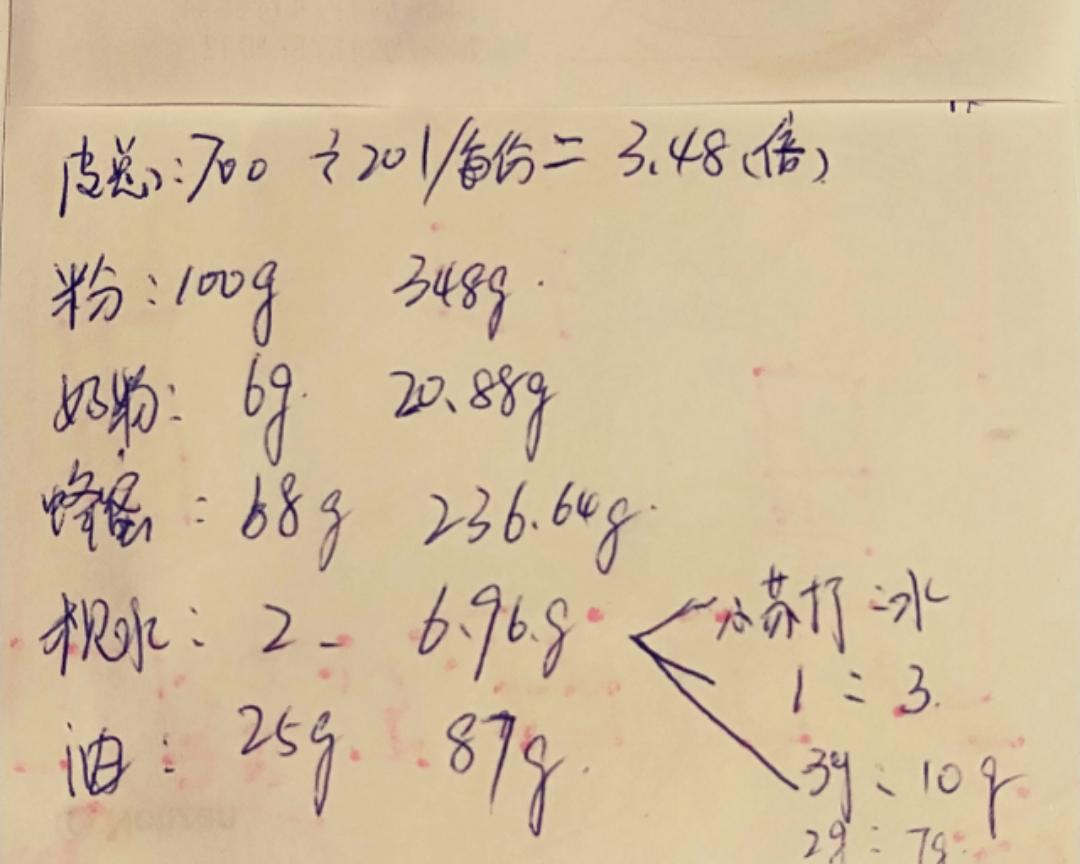 皮总:700 ÷201/每份=3.48(倍)
粉:100g 348g.
奶粉: 6g. 20.88g
蜂蜜: 68g 236.64g.
枧水: 2- 6.96g
小苏打:水
1:3.
油: 25g 87g.
3g:10g
2g:7g.